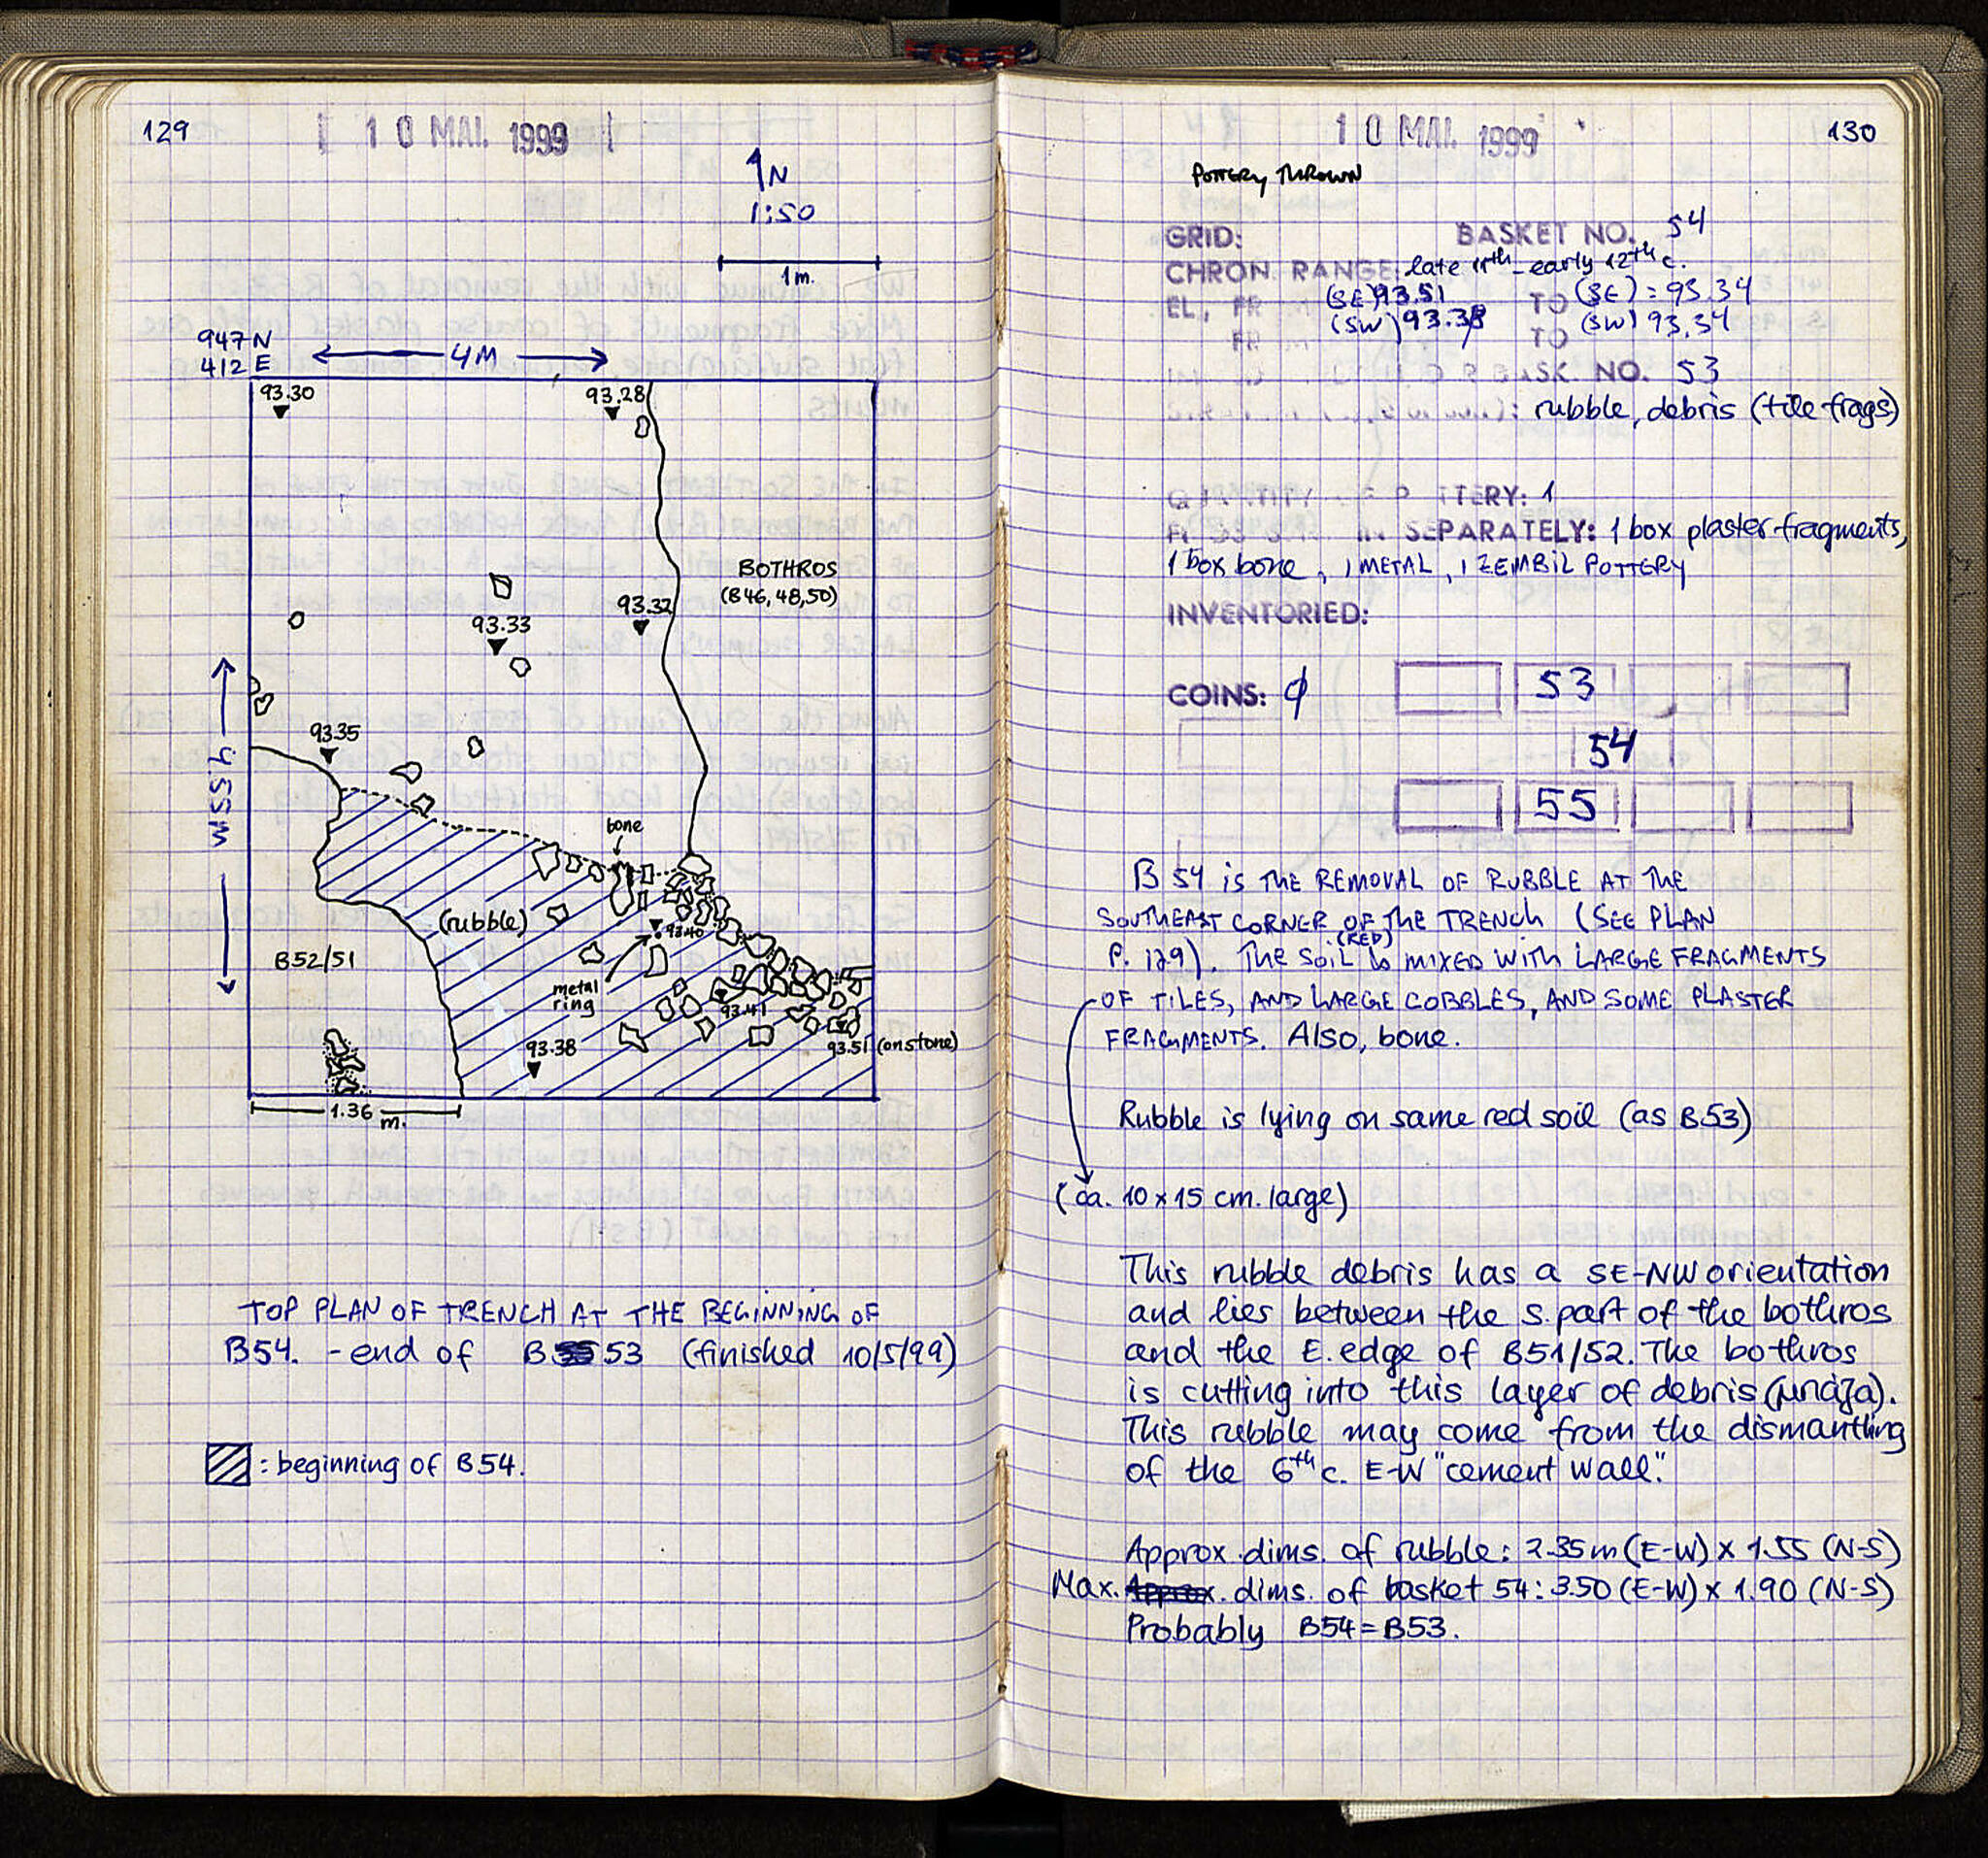 129
10 MAI. 1999
N
1:50
1m.
947 N
412 E
4M
93.30
93.28
BOTHROS
(B46, 48, 50)
93.32
93.33
93.35
4.55M
bone
(rubble)
93.40
B52/51
metal
ring
93.41
93.38
93.51 (on stone)
1.36
m.
TOP PLAN OF TRENCH AT THE BEGINNING OF
B54. - end of B 53 (finished 10/5/99)
: beginning of B54.
10 MAI. 1999
130
POTTERY THROWN
GRID: BASKET NO. 54
CHRON. RANGE: late 11th - early 12th c.
EL, FR M (SE) 93.51 TO (SE) = 93.34
FR (SW) 93.38 TO (SW) 93.34
BASK. NO. 53
: rubble, debris (tile frags)
QUANTITY OF POTTERY: 1
SEPARATELY: 1 box plaster fragments,
1 box bone, 1 METAL, 1 ZEMBIL POTTERY
INVENTORIED:
COINS: ϕ
53
54
55
B 54 IS THE REMOVAL OF RUBBLE AT THE
SOUTHEAST CORNER OF THE TRENCH (SEE PLAN
P. 129). THE SOIL (RED) IS MIXED WITH LARGE FRAGMENTS
OF TILES, AND LARGE COBBLES, AND SOME PLASTER
FRAGMENTS. Also, bone.
Rubble is lying on same red soil (as B53)
(ca. 10 x 15 cm. large)
This rubble debris has a SE-NW orientation
and lies between the S. part of the bothros
and the E. edge of B51/52. The bothros
is cutting into this layer of debris (μπάζα).
This rubble may come from the dismantling
of the 6th c. E-W "cement wall."
Approx. dims. of rubble: 2.35m (E-W) x 1.55 (N-S)
Max. Approx. dims. of basket 54: 3.50 (E-W) x 1.90 (N-S)
Probably B54 = B53.